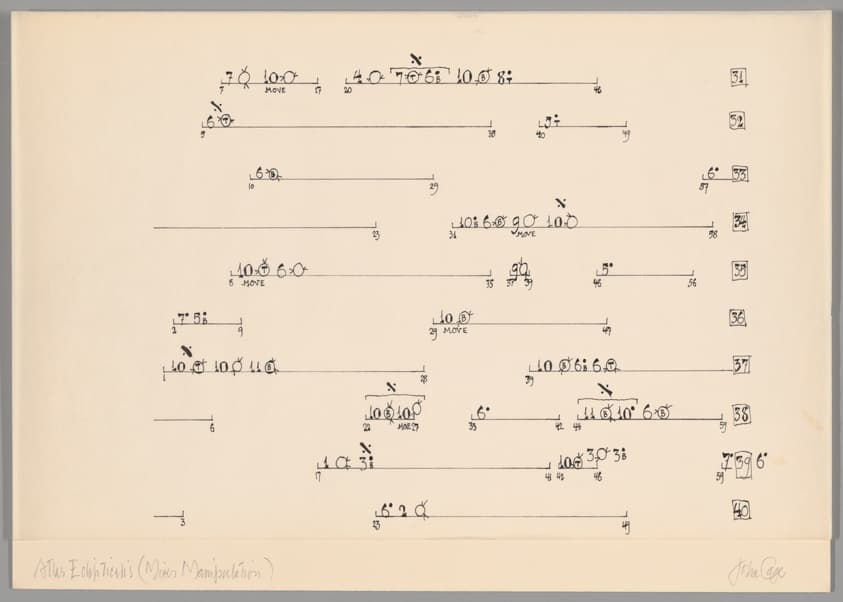 7 10 4 7 T 6 B 10 B 8 T 31
7 MOVE 17 20 46
6 T 3 T 32
5 38 40 49
6 B 6 33
10 29 57
10 B 6 B 9 10 34
23 31 MOVE 58
10 T 6 9 5 35
8 MOVE 35 37 39 46 56
7 5 B 10 B 36
2 9 29 MOVE 49
10 T 10 11 B 10 B 6 B 6 T 37
1 28 39
10 B 10 6 11 B 10 6 B 38
6 22 27 33 42 44
1 3 B 10 T 3 3 B 7 39 6
17 41 42 46 59
6 2 40
3 23 49
Atlas Eclipticalis (Mixer Manipulation) John Cage